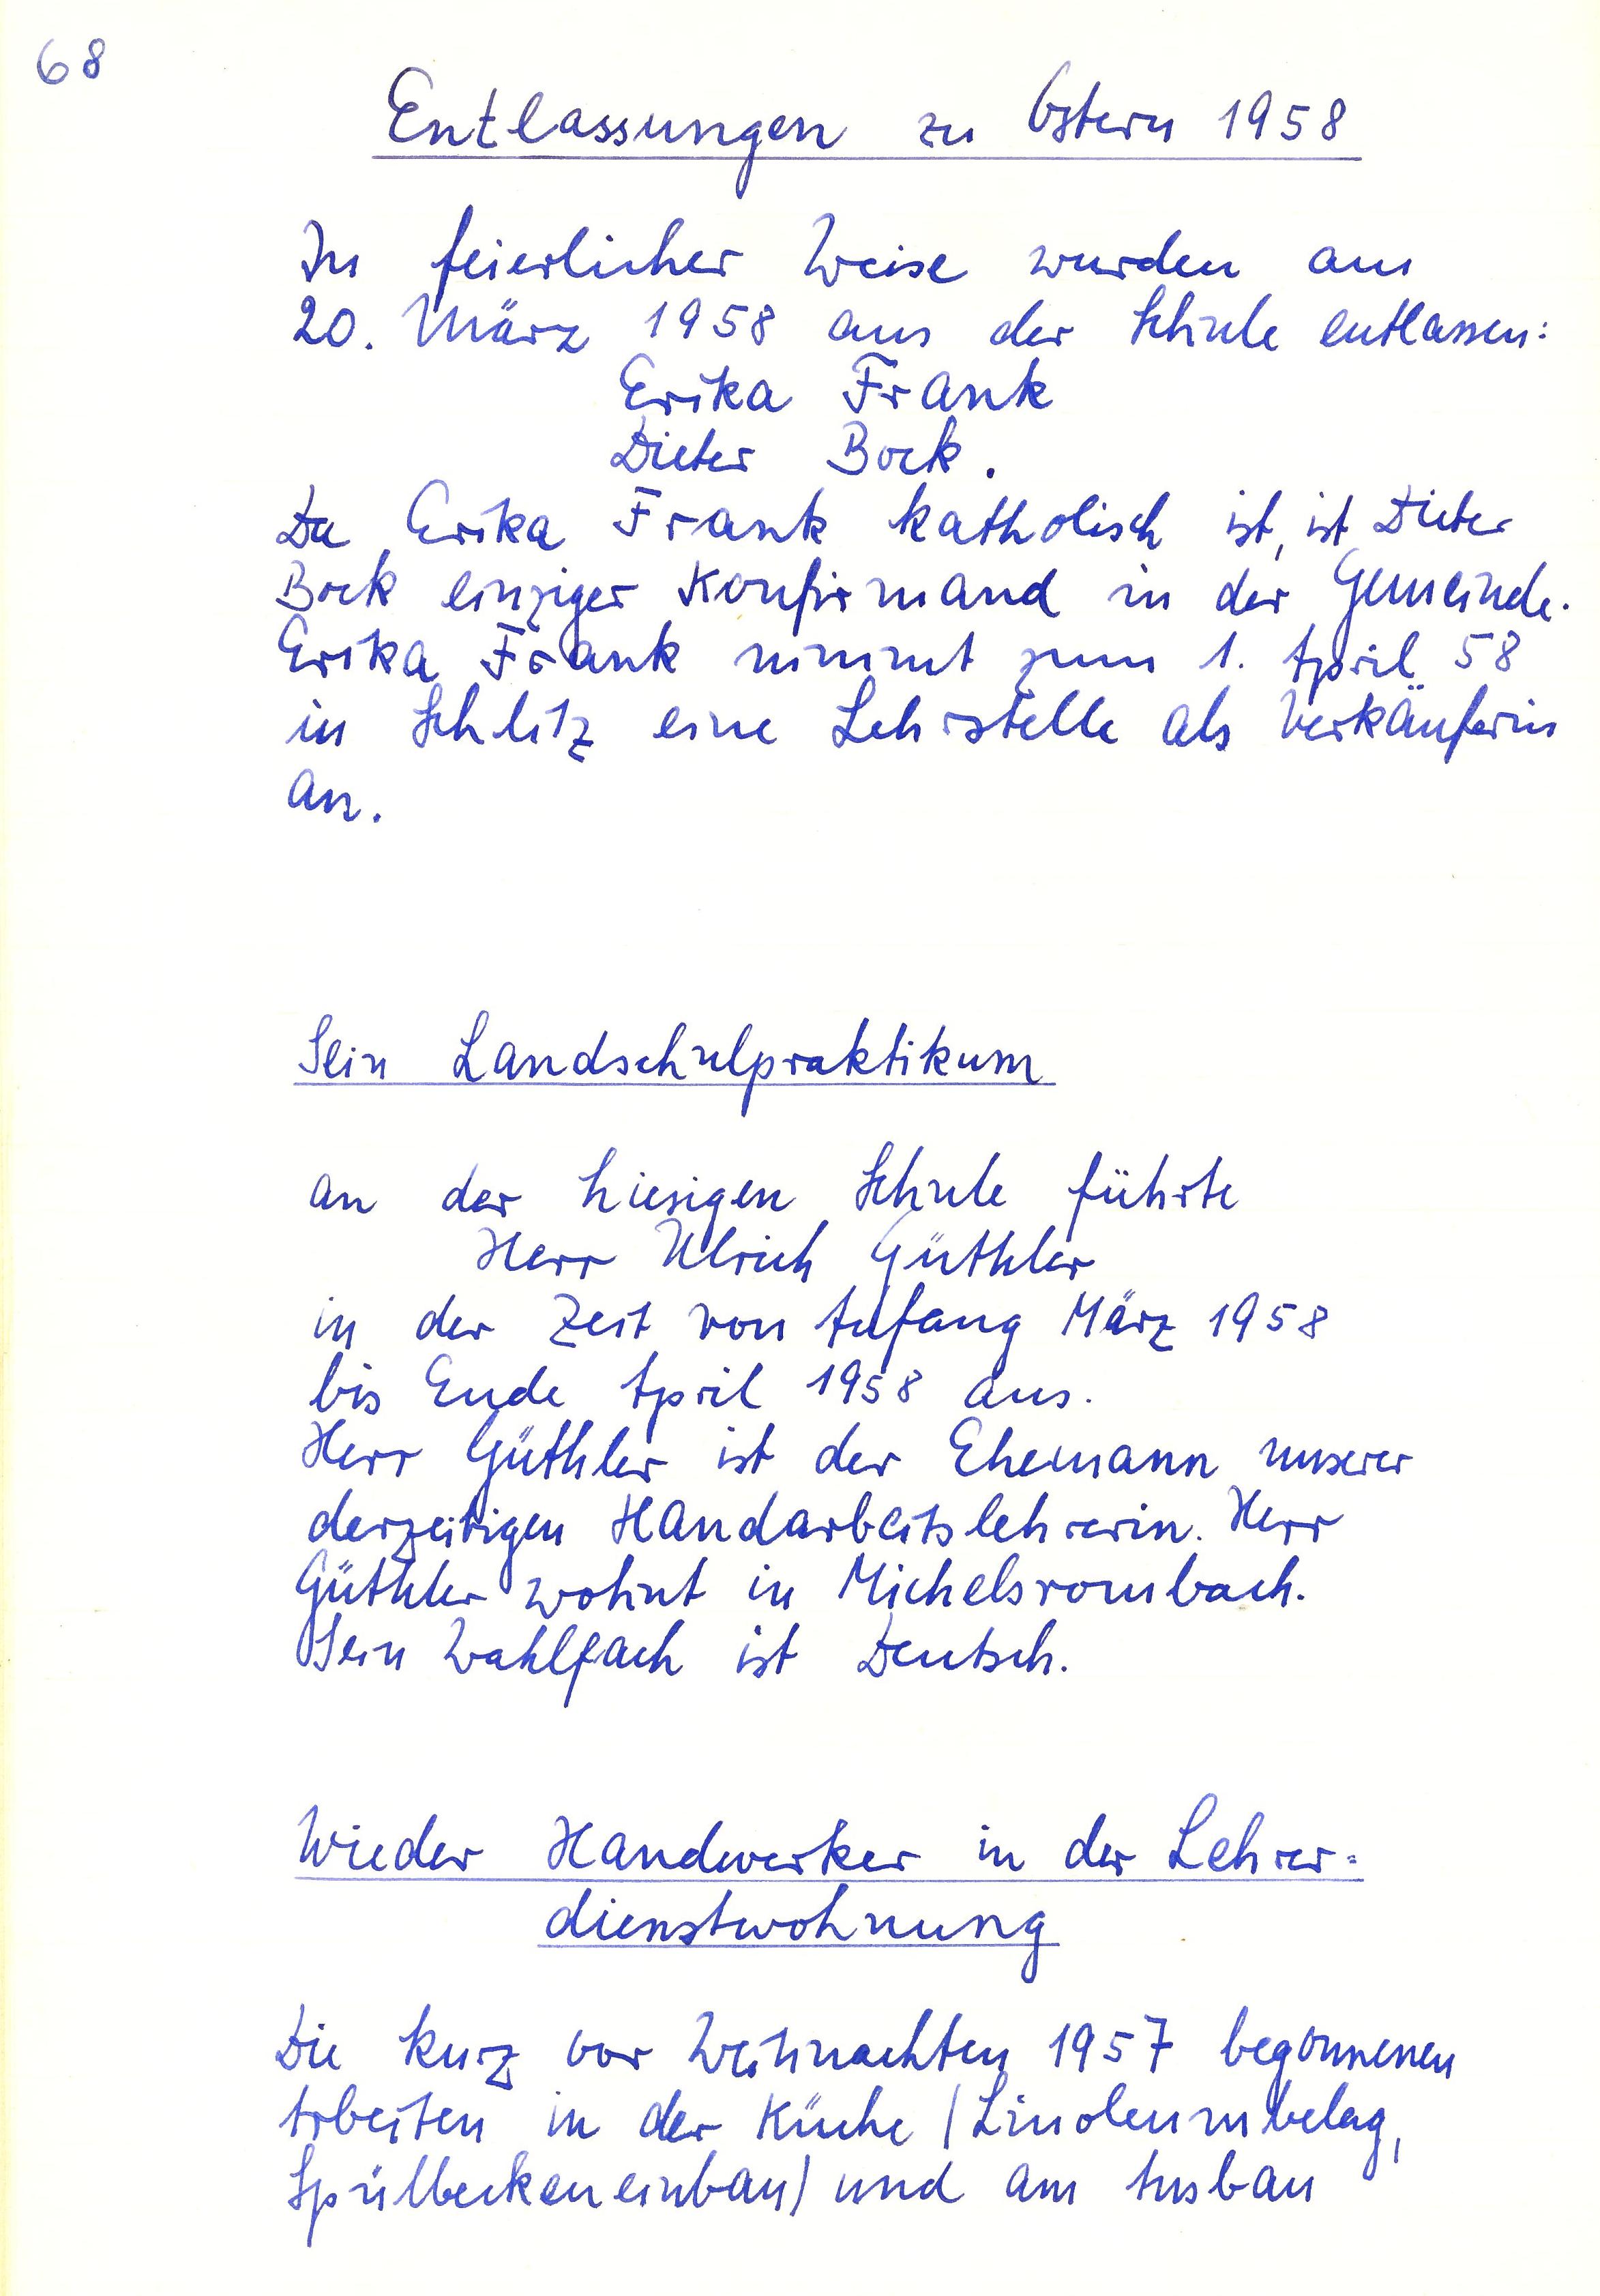 68
Entlassungen zu Ostern 1958
In feierlicher Weise wurden am
20. März 1958 aus der Schule entlassen:
Erika Frank
Dieter Bock.
Da Erika Frank katholisch ist, ist Dieter
Bock einziger Konfirmand in der Gemeinde.
Erika Frank nimmt zum 1. April 58
in Schlitz eine Lehrstelle als Verkäuferin
an.
Sein Landschulpraktikum
an der hiesigen Schule führte
Herr Ulrich Güthler
in der Zeit von Anfang März 1958
bis Ende April 1958 aus.
Herr Güthler ist der Ehemann unserer
derzeitigen Handarbeitslehrerin. Herr
Güthler wohnt in Michelsrombach.
Sein Wahlfach ist Deutsch.
Wieder Handwerker in der Lehrer-
dienstwohnung
Die kurz vor Weihnachten 1957 begonnenen
Arbeiten in der Küche (Linoleumbelag,
Spülbeckeneinbau) und am Ausbau